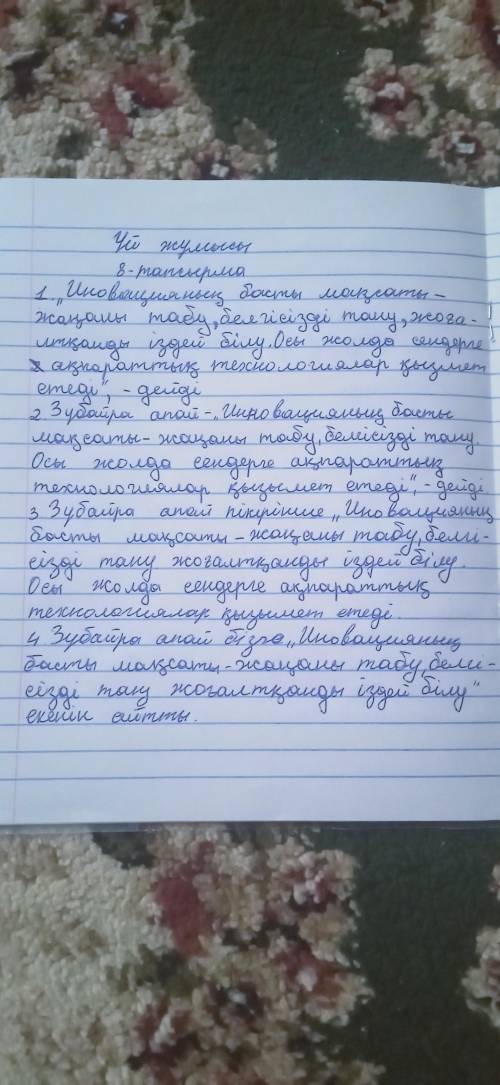 Үй жұмысы
8-тапсырма
1. „Иновацияның басты мақсаты-
жаңаны табу, белгісізді тану, жоға-
лтқанды іздей білу. Осы жолда сендерге
ақпараттық технологиялар қызмет
етеді", - дейді
2 Зубайра апай - „Инновацияның басты
мақсаты- жаңаны табу, белгісізді тану.
Осы жолда сендерге ақпараттық
технологиялар қызымет етеді", - дейді
3 Зубайра апай пікірінше „Иновацияның
басты мақсаты - жаңаны табу, белгі-
сізді тану жоғалтқанды іздей білу.
Осы жолда сендерге ақпараттық
технологиялар қызымет етеді.
4 Зубайра апай бізге „Иновацияның
басты мақсаты - жаңаны табу, белгі-
сізді тану жоғалтқанды іздей білу"
екенін айтты.